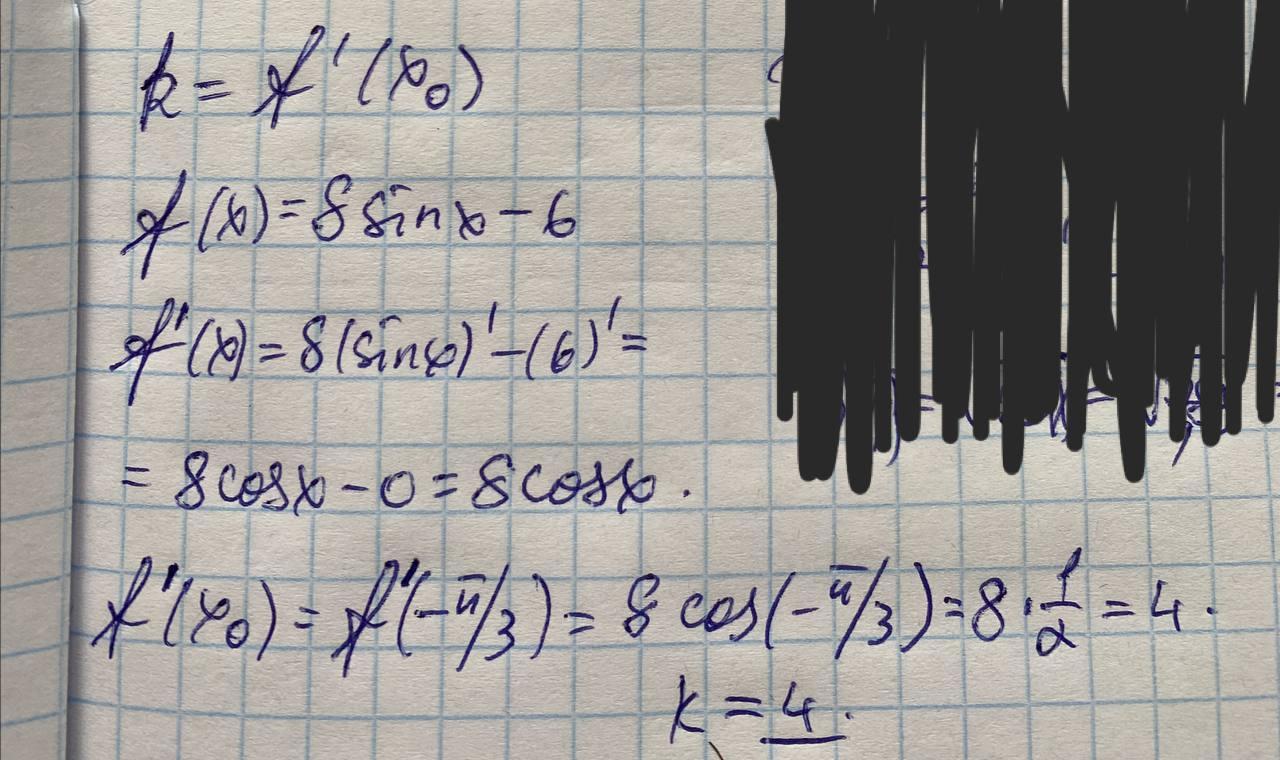 k = f'(x₀)
f(x) = 8 sin x - 6
f'(x) = 8(sin x)' - (6)' =
= 8 cos x - 0 = 8 cos x.
f'(x₀) = f'(-π/3) = 8 cos(-π/3) = 8 · 1/2 = 4.
k = 4.